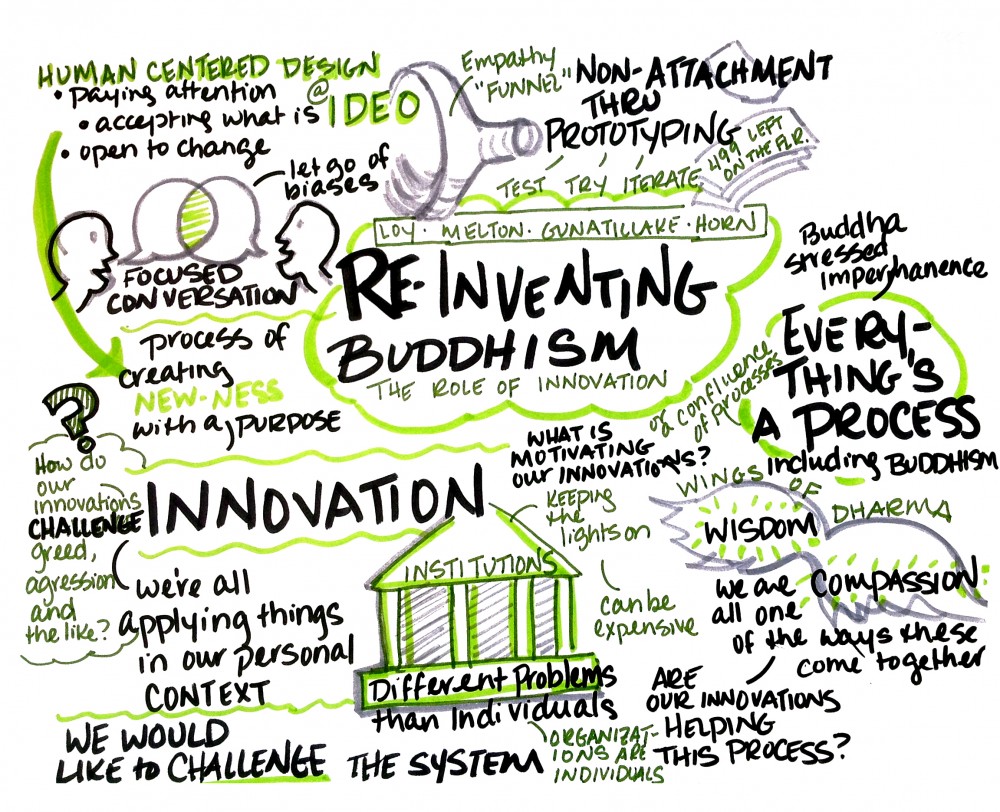 HUMAN CENTERED DESIGN
@
IDEO
• paying attention
• accepting what is
• open to change
let go of
biases
FOCUSED
CONVERSATION
Empathy
"FUNNEL"
NON-ATTACHMENT
THRU
PROTOTYPING
TEST TRY ITERATE
499 LEFT
ON THE FLR.
LOY · MELTON · GUNATILLAKE · HORN
RE-INVENTING
BUDDHISM
THE ROLE OF INNOVATION
Buddha
stressed
Impermanence
EVERY-
THING'S
A PROCESS
or confluence
of processes
including BUDDHISM
process of
creating
NEW-NESS
with a PURPOSE
?
How do
our
innovations
CHALLENGE
greed,
agression
and
the like?
INNOVATION
we're all
applying things
in our personal
CONTEXT
WHAT IS
MOTIVATING
our INNOVATIONS?
KEEPING
the
lights on
can be
expensive
INSTITUTIONS
Different Problems
than Individuals
ORGANIZAT-
IONS ARE
INDIVIDUALS
WINGS OF DHARMA
WISDOM
COMPASSION
we are
all one
of the ways these
come together
ARE
OUR INNOVATIONS
HELPING
THIS PROCESS?
WE WOULD
LIKE to CHALLENGE THE SYSTEM